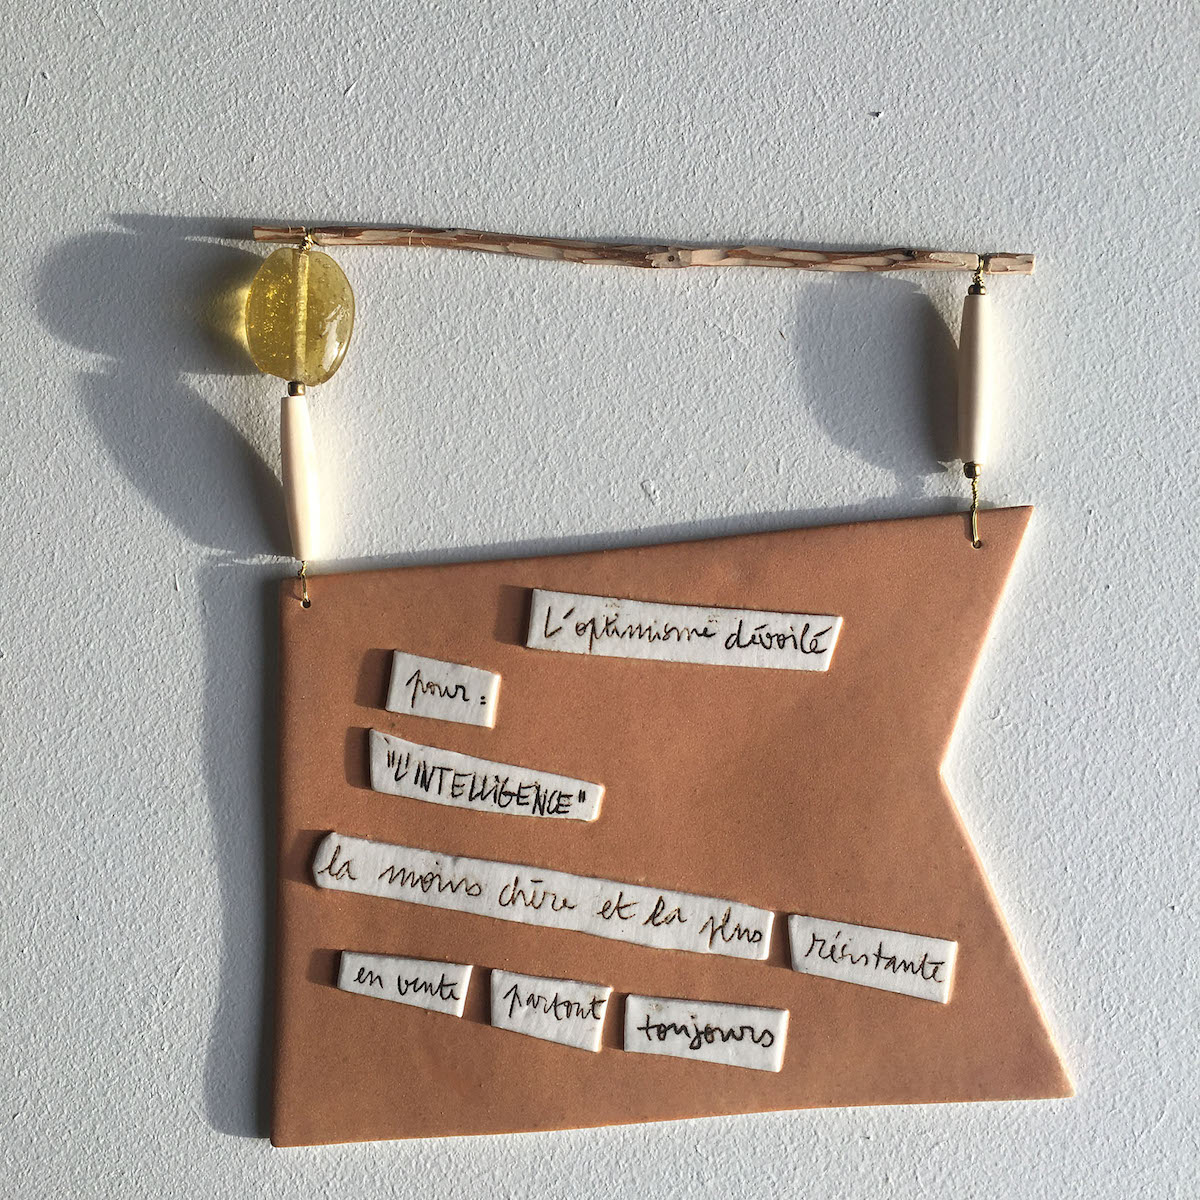 L'optimisme dévoilé
pour :
"L'INTELLIGENCE"
la moins chère et la plus résistante
en vente partout toujours